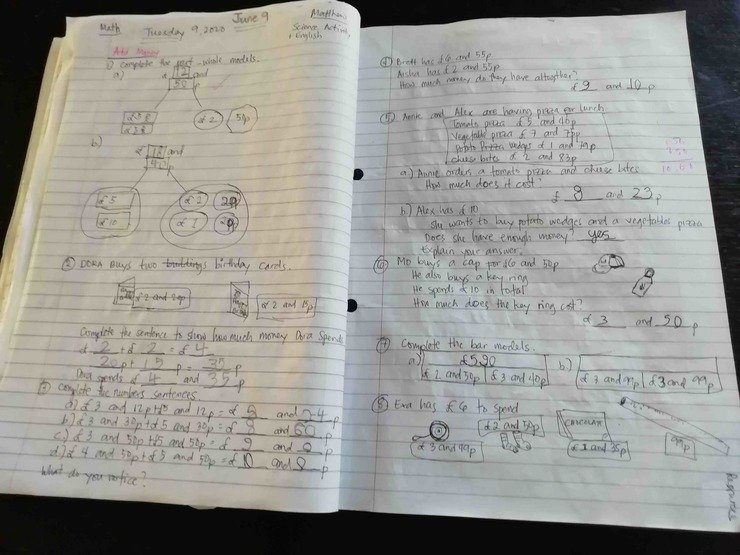 Math
Tuesday 9, 2020
June 9
Science
+ English
Add Money
1) Complete the part-whole models.
a)
£ and
50 p
£2
50p
b)
£ and
£5
£10
£2
£1
② Dora buys two birthday cards.
£2 and 20p
£2 and 15p
Complete the sentence to show how much money Dora spends
£ 2 + £ 2 = £ 4
20 p + 15 p = 35 p
Dora spends £ 4 and 35 p
③ Complete the numbers sentences.
a) £3 and 12p + £5 and 12p = £ and 24 p
b) £3 and 30p + £5 and 30p = £ and 60 p
c) £3 and 50p + £5 and 50p = £ 9 and 0 p
d) £4 and 50p + £5 and 50p = £ 10 and 0 p
What do you notice?
④ Brett has £6 and 55p
Aisha has £2 and 55p
How much money do they have altogether?
£ 9 and 10 p
⑤ Annie and Alex are having pizza for lunch
Tomato pizza £5 and 40p
Vegetable pizza £7 and 75p
Potato wedges £1 and 79p
Cheese bites £2 and 83p
a) Annie orders a tomato pizza and cheese bites
How much does it cost?
£ 8 and 23 p
b) Alex has £10
She wants to buy potato wedges and a vegetables pizza
Does she have enough money? yes
Explain your answer.
⑥ Mo buys a cap for £6 and 50p
He also buys a key ring
He spends £10 in total
How much does the key ring cost?
£ 3 and 50 p
⑦ Complete the bar models.
a) £5.90
£2 and 50p £3 and 40p
b)
£3 and 99p £3 and 99p
⑧ Eva has £6 to spend
£3 and 99p
£2 and 50p
CHOCOLATE
£1 and 35p
99p